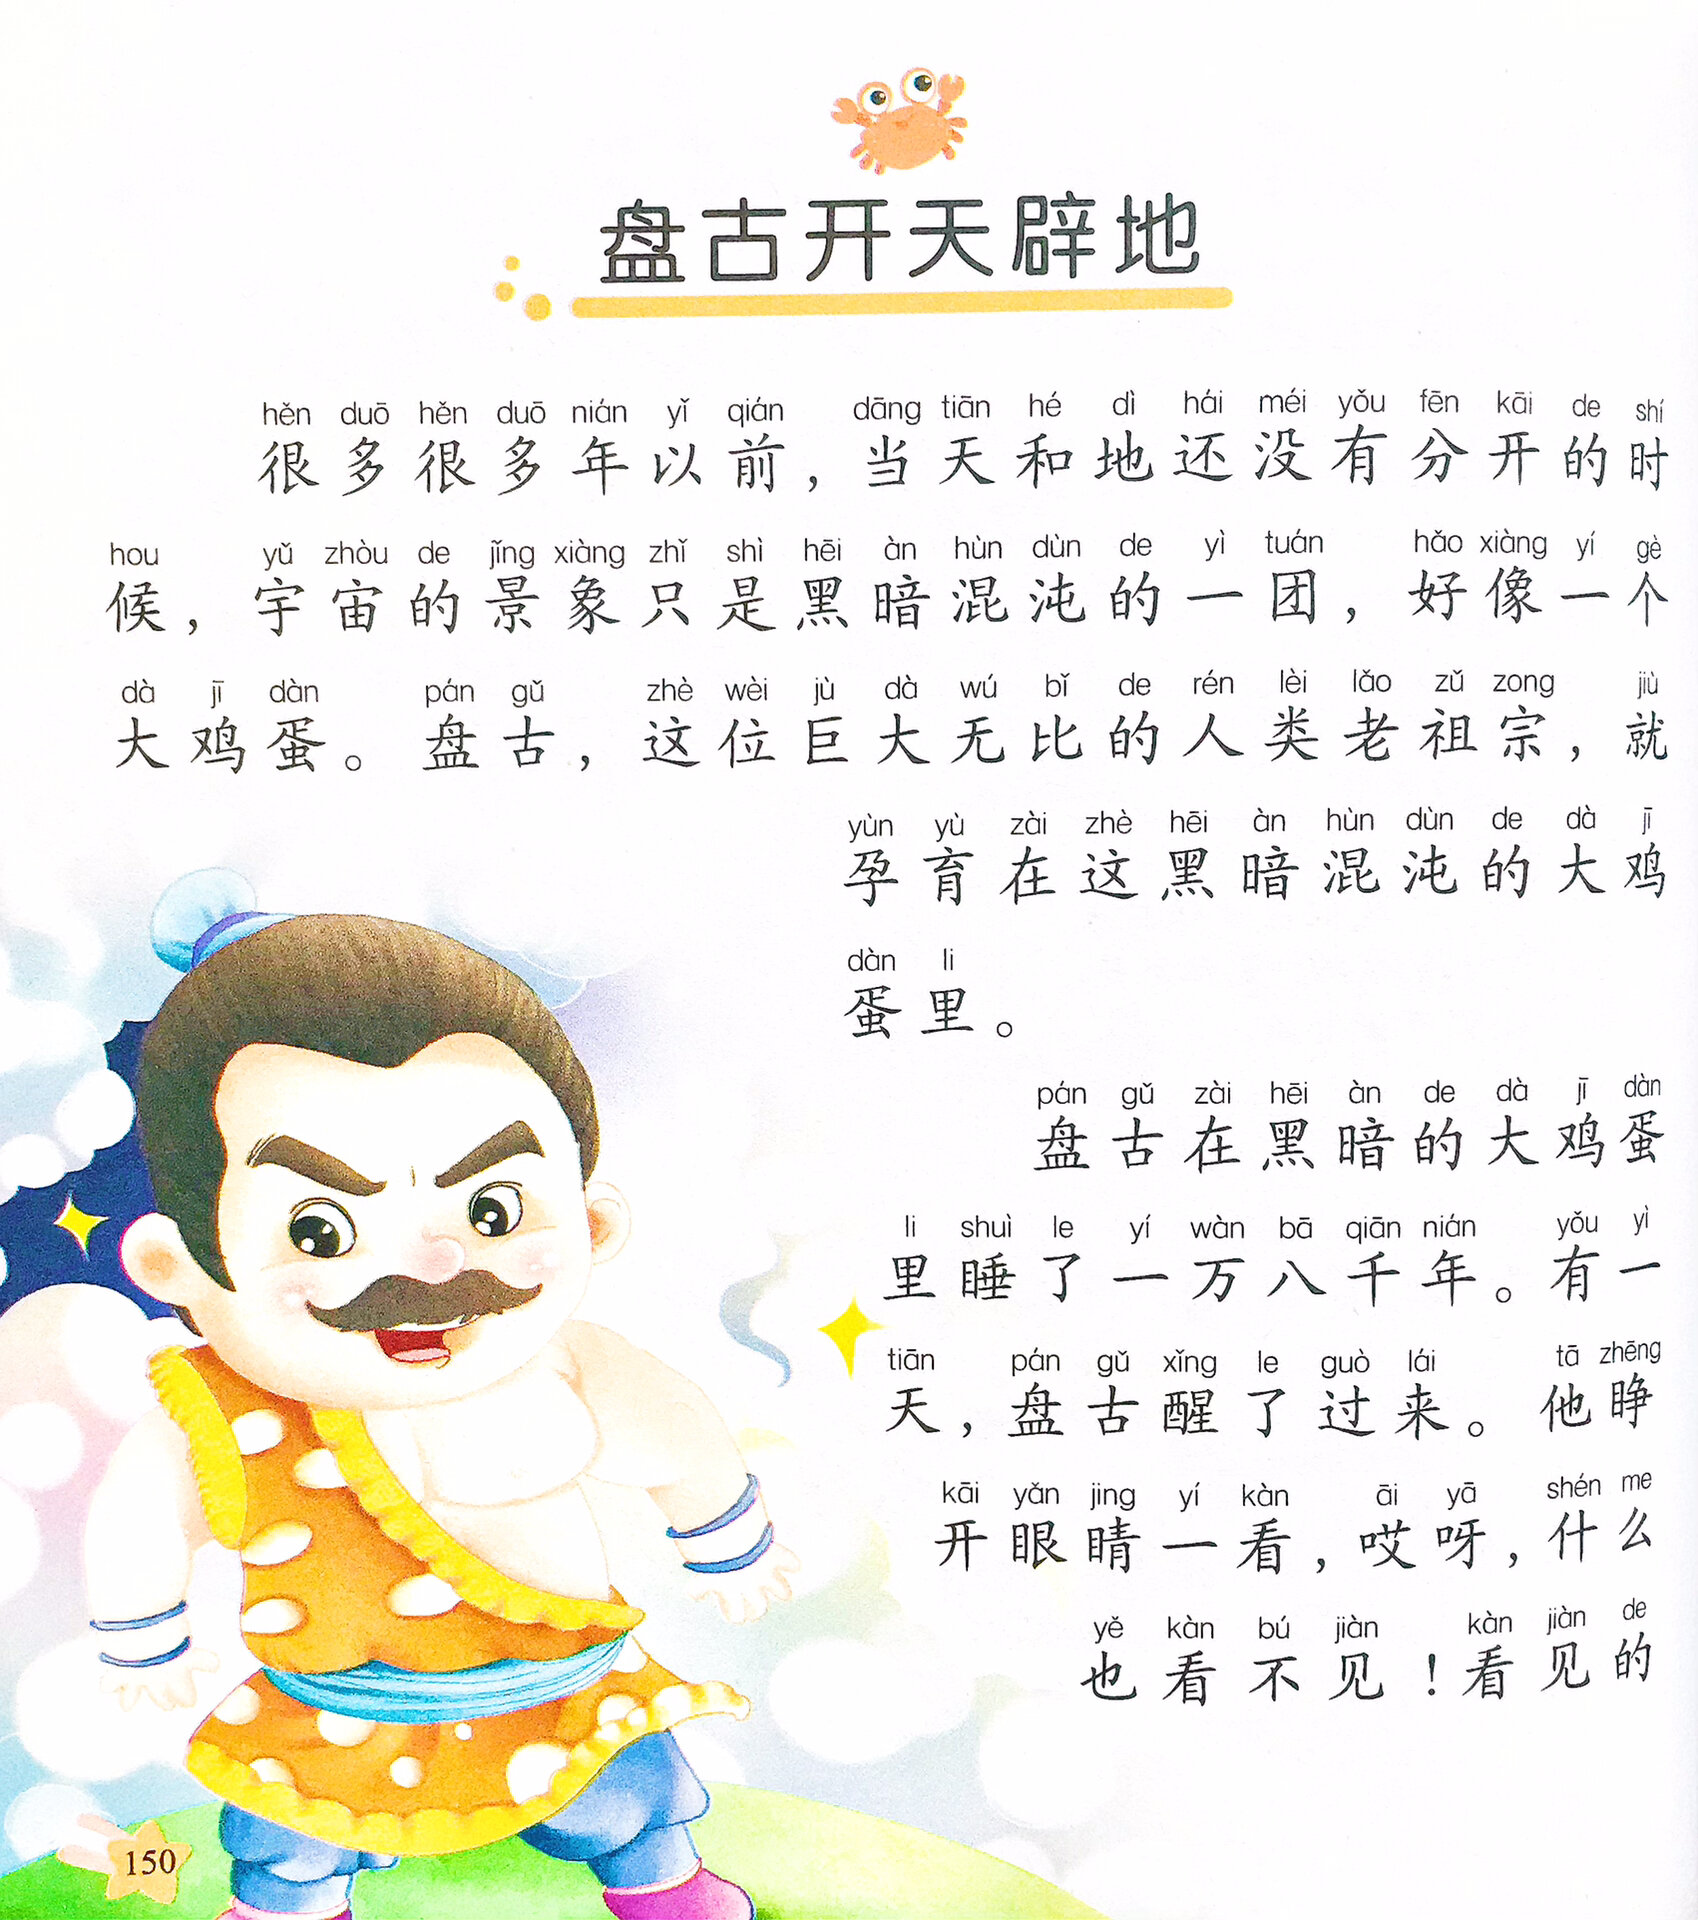 盘古开天辟地
hěn duō hěn duō nián yǐ qián dāng tiān hé dì hái méi yǒu fēn kāi de shí
很多很多年以前，当天和地还没有分开的时
hou yǔ zhòu de jǐng xiàng zhǐ shì hēi àn hùn dùn de yì tuán hǎo xiàng yí gè
候，宇宙的景象只是黑暗混沌的一团，好像一个
dà jī dàn pán gǔ zhè wèi jù dà wú bǐ de rén lèi lǎo zǔ zong jiù
大鸡蛋。盘古，这位巨大无比的人类老祖宗，就
yùn yù zài zhè hēi àn hùn dùn de dà jī
孕育在这黑暗混沌的大鸡
dàn li
蛋里。
pán gǔ zài hēi àn de dà jī dàn
盘古在黑暗的大鸡蛋
li shuì le yí wàn bā qiān nián yǒu yì
里睡了一万八千年。有一
tiān pán gǔ xǐng le guò lái tā zhēng
天，盘古醒了过来。他睁
kāi yǎn jing yí kàn āi yā shén me
开眼睛一看，哎呀，什么
yě kàn bú jiàn kàn jiàn de
也看不见！看见的
150